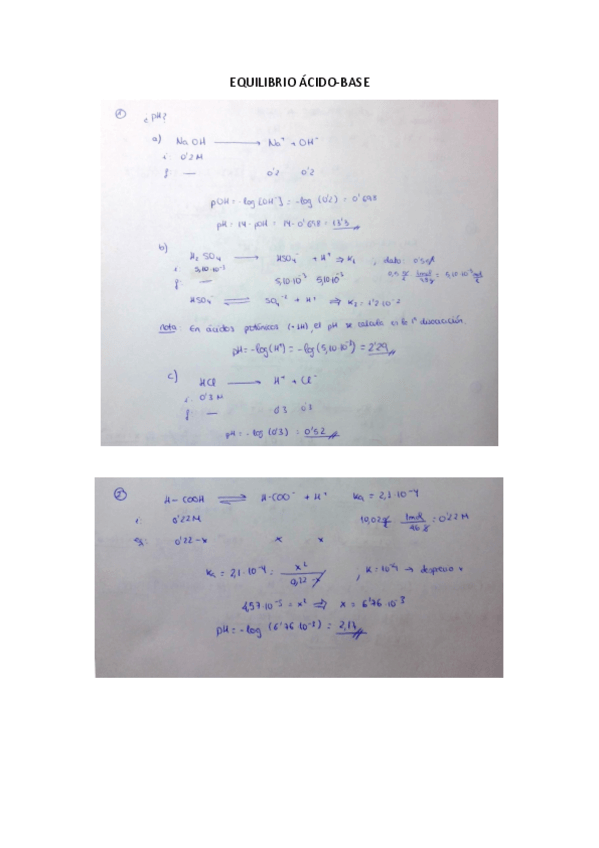 EQUILIBRIO ÁCIDO-BASE
① ¿pH?
a) NaOH → Na⁺ + OH⁻
i: 0'2 M
f: — 0'2 0'2
pOH = -log [OH⁻] = -log (0'2) = 0'698
pH = 14 - pOH = 14 - 0'698 = 13'3
b) H₂SO₄ → HSO₄⁻ + H⁺ ⇒ K₁ ; dato:
i: 5,10·10⁻³
f: — 5,10·10⁻³ 5,10·10⁻³
HSO₄⁻ ⇌ SO₄⁻² + H⁺ ⇒ K₂ = 1'2·10⁻²
nota: En ácidos polipróticos (+1H), el pH se calcula en la 1ª disociación.
pH = -log(H⁺) = -log(5,10·10⁻³) = 2'29
c) HCl → H⁺ + Cl⁻
i: 0'3 M
f: — 0'3 0'3
pH = -log (0'3) = 0'52
② H-COOH ⇌ H-COO⁻ + H⁺ Ka = 2,1·10⁻⁴
i: 0'22M 10,02 g 1mol/46 g = 0'22 M
0'22-x x x
Ka = 2,1·10⁻⁴ = x²/0,22-x ; K=10⁻⁴ → desprecio x
4,57·10⁻⁵ = x² ⇒ x = 6'76·10⁻³
pH = -log (6'76·10⁻³) = 2,17